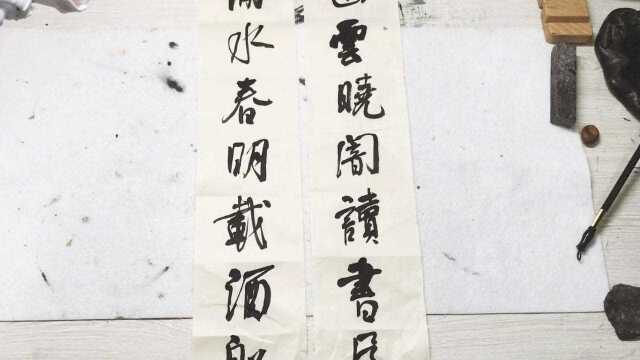 雲曉闇讀書
水春明載酒